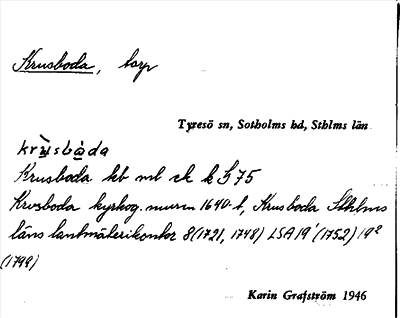 Krusboda, torp
Tyresö sn, Sotholms hd, Sthlms län
krùsbòda
Krusboda hb ml ek k S 75
Krusboda kyrkog. muren 1640-t, Krusboda Sthlms
läns lantmäterikontor 8(1721, 1748) LSA 19¹(1752) 19²
(1794)
Karin Grafström 1946